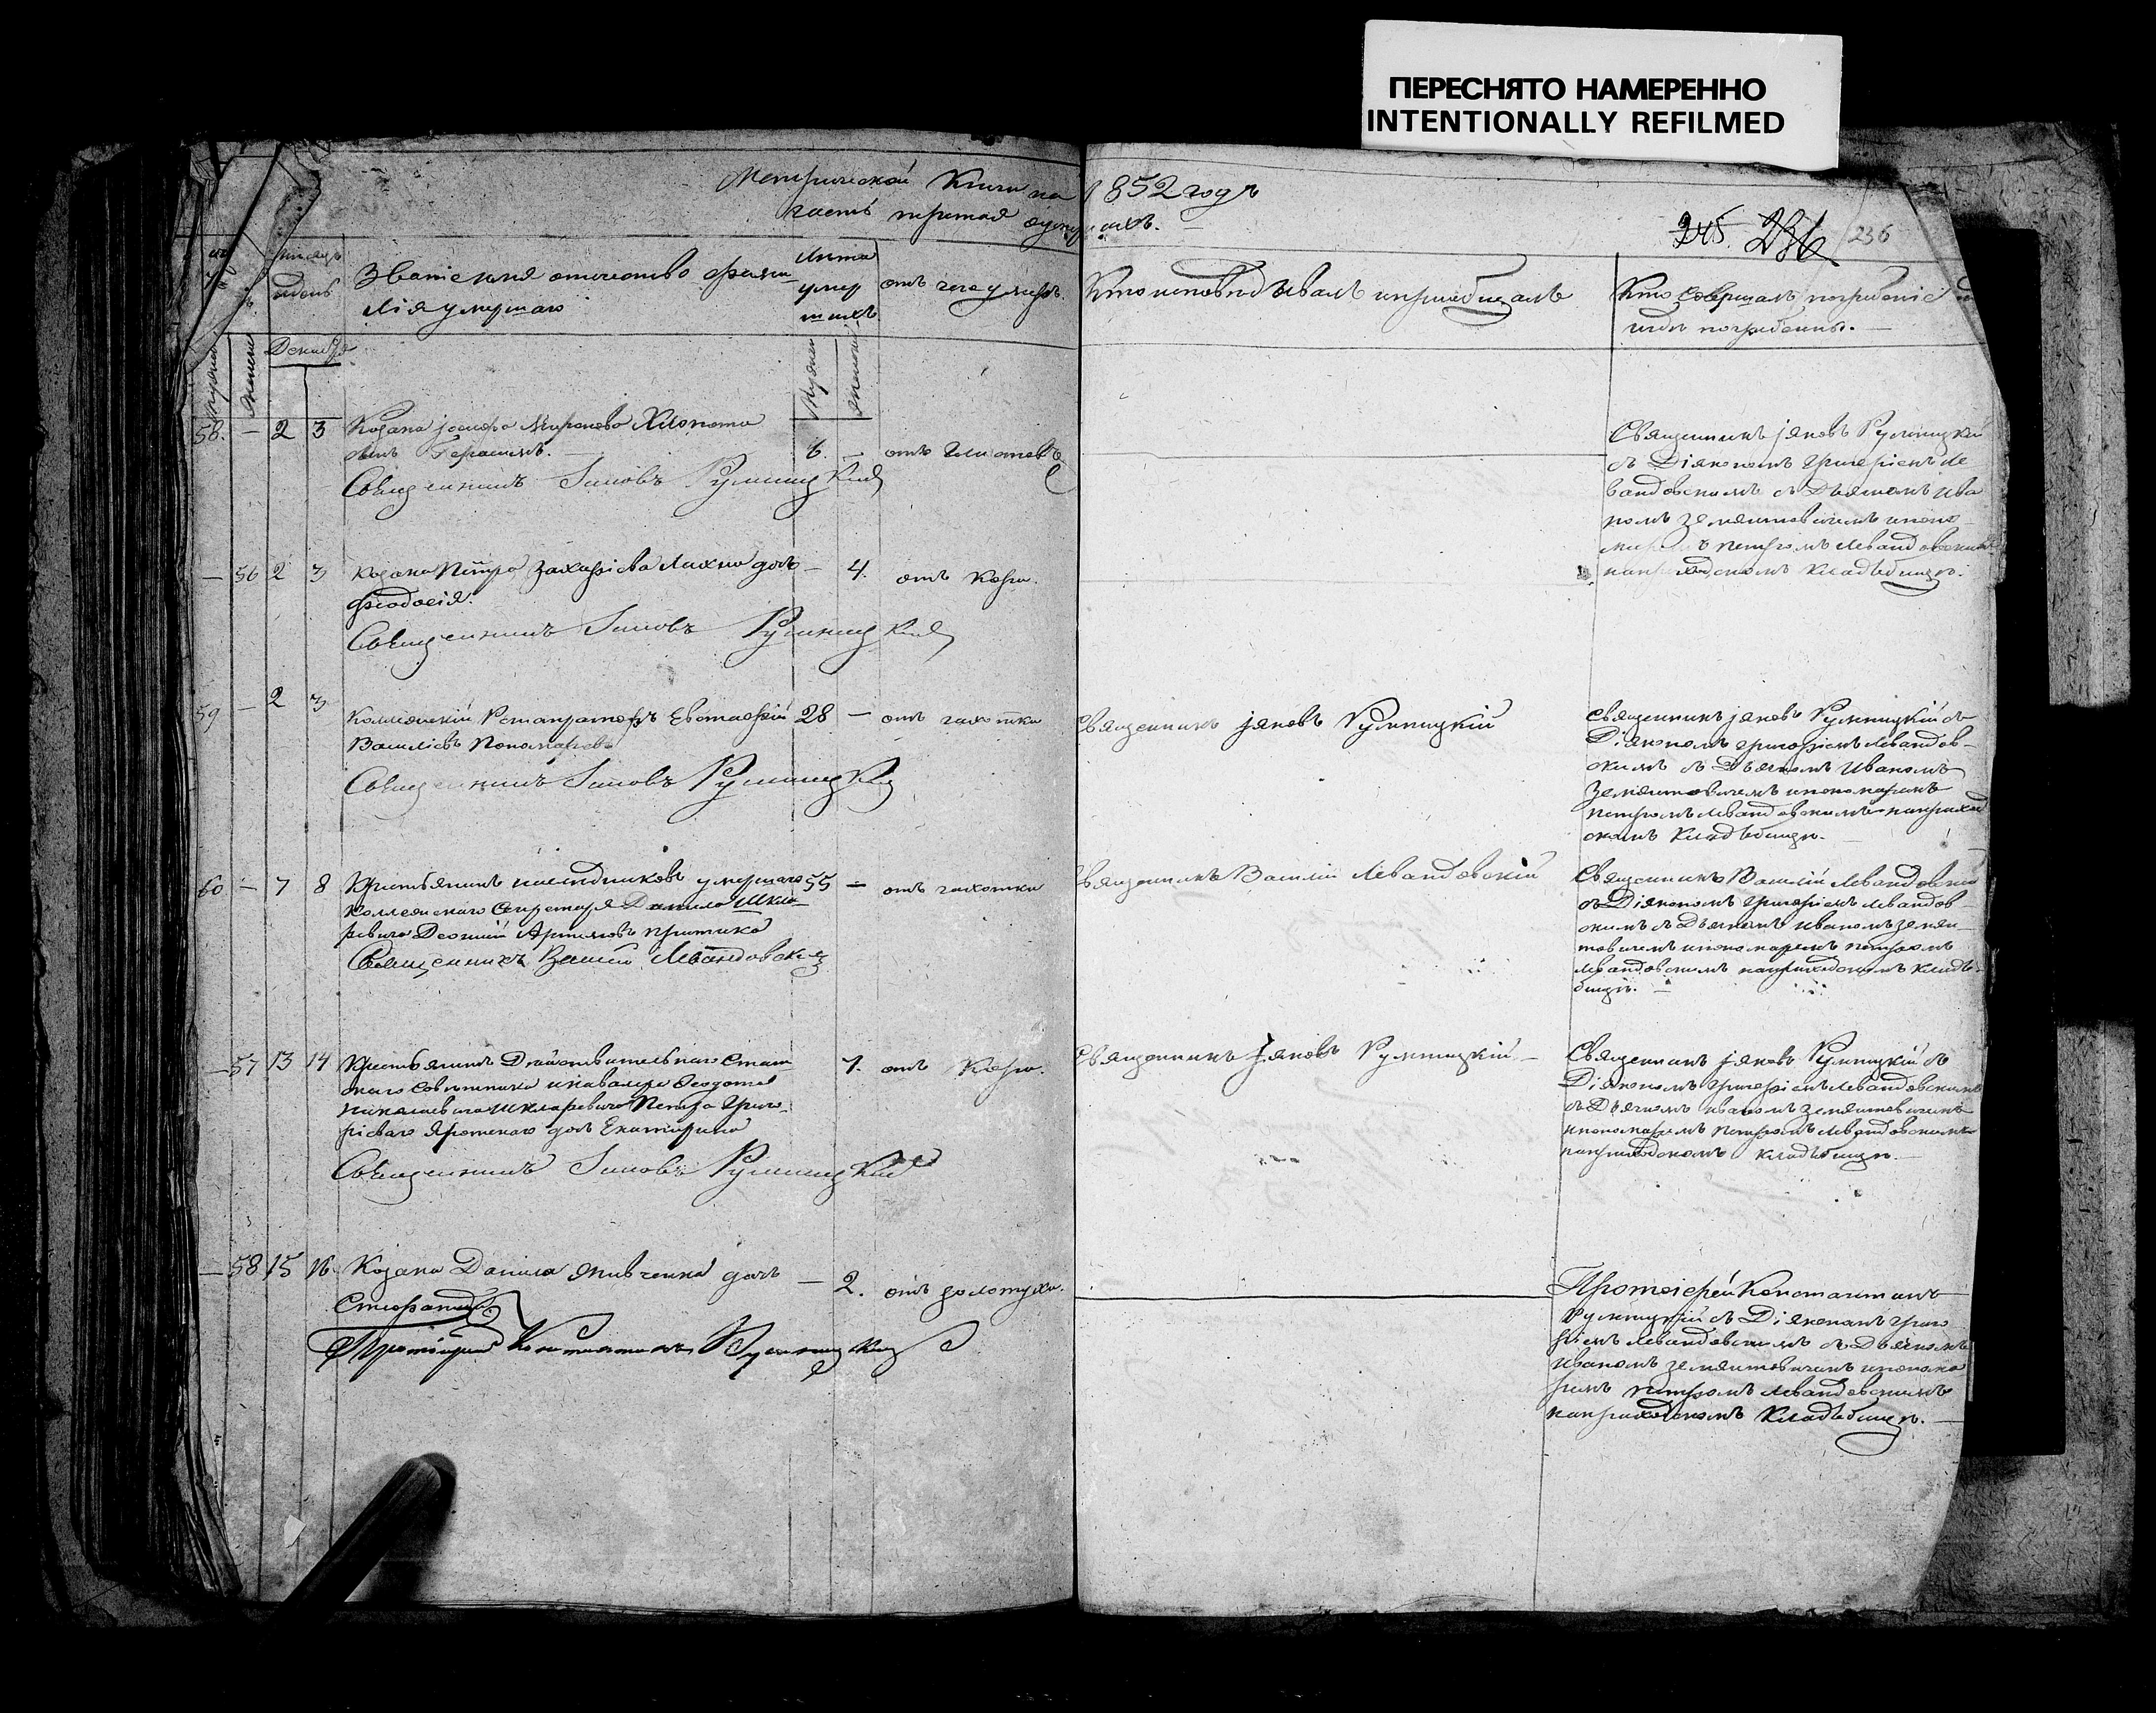 ПЕРЕСНЯТО НАМЕРЕННО
INTENTIONALLY REFILMED
Метрической Книги на 1852 годъ
часть третая о умершихъ.
245. 236 236
Званіе имя отчество фами-
лія умершаго
Лѣта
умер
шихъ
отъ чего умеръ.
Кто исповѣдывалъ и пріобщалъ
Кто совершалъ погребеніе и
гдѣ погребены.
Декабря
58. — 2 3 Козака Миронова
сынъ Герасимъ. 6. — отъ глистовъ
Священникъ Іаковъ Румницкій
Священникъ Іяковъ Румницкій
съ Діякономъ Григоріемъ Ле
вандовскимъ съ Дьячкомъ Ива
номъ Земянтовичемъ и поно
Петромъ Левандовскимъ
Кладбищѣ.
— 56 2 3 Козака Петра Захаріева Лихна дочь — 4. отъ Кори.
Феодосія.
Священникъ Іаковъ Румницкій
59 — 2 3 Коллежскій Регистраторъ Евстафій 28 — отъ чахотки
Василіевъ Пономаревъ
Священникъ Іаковъ Румницкій
Священникъ Іяковъ Румницкій
Священникъ Іяковъ Румницкій съ
Діякономъ Григоріемъ Левандов-
скимъ съ Дьячкомъ Иваномъ
Земянтовичемъ и пономаремъ
Петромъ Левандовскимъ на приход
скомъ Кладбищѣ.
60 — 7 8 Крестьянинъ наслѣдниковъ умершаго 55 — отъ чахотки
Коллежскаго Секретаря Данила Шкля-
ревича Артемовъ
Священникъ Василій Левандовскій
Священникъ Василій Левандовскій
Священникъ Василій Левандовскій
съ Діякономъ Григоріемъ Левандов-
скимъ съ Дьячкомъ Иваномъ Земян-
товичемъ и пономаремъ Петромъ
Левандовскимъ на приходскомъ Кладъ-
бищѣ.
— 57 13 14 Крестьянина Дѣйствительнаго Стат
скаго Совѣтника и Кавалера
Николаевича Шкляревича Петра Григо-
ріева дочь Екатерина 7. отъ Кори.
Священникъ Іаковъ Румницкій
Священникъ Іяковъ Румницкій
Священникъ Іяковъ Румницкій съ
Діякономъ Григоріемъ Левандовскимъ
съ Дьячкомъ Иваномъ Земянтовичемъ
и пономаремъ Петромъ Левандовскимъ
на приходскомъ Кладбищѣ.
— 58 15 16 Козака Данила Якивченка дочь — 2. отъ золотухи.
Стефанида
Протоіерей Константинъ Румницкій
Протоіерей Константинъ
Румницкій съ Діякономъ Григо
ріемъ Левандовскимъ съ Дьячкомъ
Иваномъ Земянтовичемъ и понома
ремъ Петромъ Левандовскимъ
на приходскомъ Кладбищѣ.